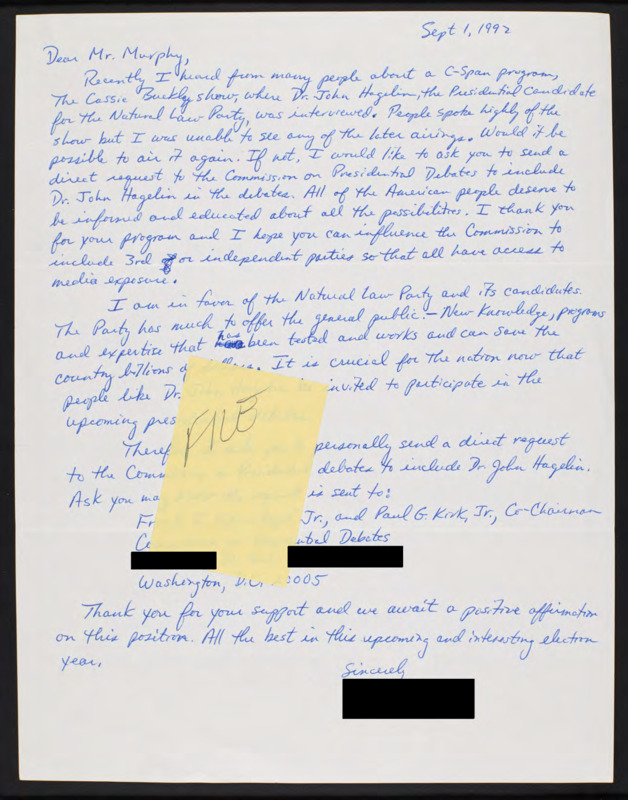 Sept 1, 1992
Dear Mr. Murphy,
Recently I heard from many people about a C-Span program,
The Cassie Buckly show, where Dr. John Hagelin, the Presidential Candidate
for the Natural Law Party, was interviewed. People spoke highly of the
show but I was unable to see any of the later airings. Would it be
possible to air it again. If not, I would like to ask you to send a
direct request to the Commission on Presidential Debates to include
Dr. John Hagelin in the debates. All of the American people deserve to
be informed and educated about all the possibilities. I thank you
for your program and I hope you can influence the Commission to
include 3rd or independent parties so that all have access to
media exposure.
I am in favor of the Natural Law Party and its candidates.
The Party has much to offer the general public:- New Knowledge, programs
and expertise that has been tested and works and can save the
country billions of dollars. It is crucial for the nation now that
people like Dr. invited to participate in the
upcoming pres
FILE
Theref personally send a direct request
to the Comm debates to include Dr. John Hagelin.
Ask you ma is sent to:
Fr Jr., and Paul G. Kirk, Jr., Co-Chairman
Co ntial Debates
Washington, D.C. 20005
Thank you for your support and we await a positive affirmation
on this position. All the best in this upcoming and interesting election
year.
Sincerely